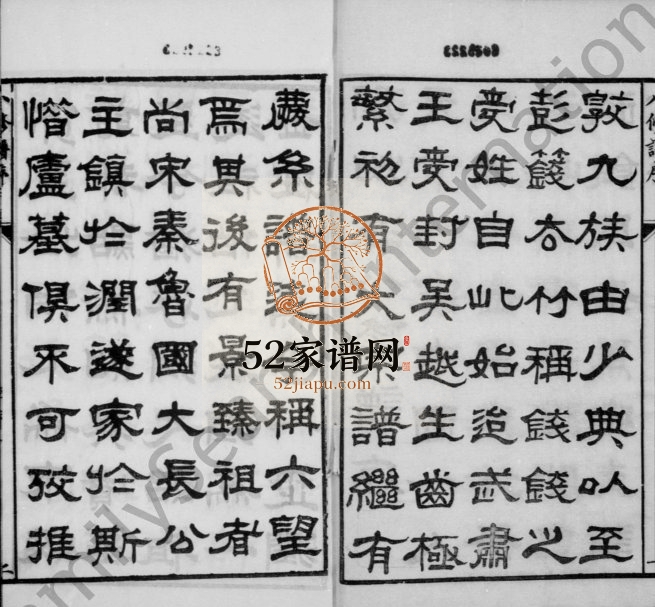 敦九族由少典以至
彭籛去竹稱錢錢之
受姓自此始迨武肅
王受封吳越生齒極
繁初有大宗譜繼有
慶系譜稱六望
焉其後有景臻祖者
尚宋秦魯國大長公
主鎮於潤遂家於斯
惜廬墓俱不可攷推
52家谱网
52jiapu.com
FamilySearch International